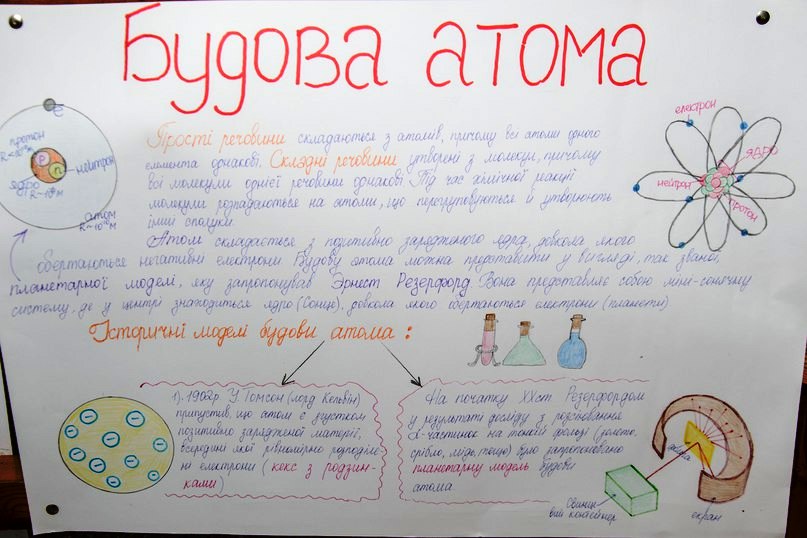 Будова атома
Прості речовини складаються з атомів, причому всі атоми одного
елемента однакові. Складні речовини утворені з молекул, причому
всі молекули однієї речовини однакові. Під час хімічної реакції
молекули розпадаються на атоми, що перегруповуються й утворюють
інші сполуки.
Атом складається з позитивно зарядженого ядра, довкола якого
обертаються негативні електрони. Будову атома можна представити у вигляді, так званої,
планетарної моделі, яку запропонував Эрнест Резерфорд. Вона представляє собою міні-сонячну
систему, де у центрі знаходиться ядро (Сонце), довкола якого обертаються електрони (планети).
e
протон
p
n
нейтрон
ядро
атом
електрон
ядро
нейтрон
протон
Історичні моделі будови атома:
1). 1902р. У. Томсон (лорд Кельвін)
припустив, що атом є згустком
позитивно зарядженої матерії,
всередині якої рівномірно розподіле-
ні електрони (кекс з родзин-
ками)
На початку XXст Резерфордом
у результаті досліду з розсіювання
α-частинок на тонкій фользі (золото,
срібло, мідь, тощо) було запропоновано
планетарну модель будови
атома.
фольга
Свинце-
вий контейнер
екран